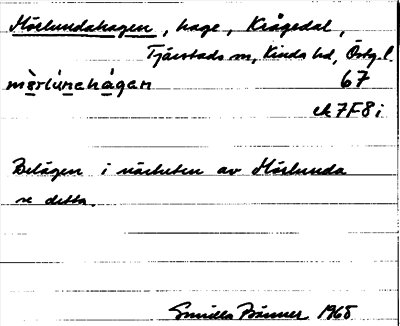 Mörlundahagen, hage, Krågedal,
Tjärstads sn, Kinds hd, Östg. l.
mɛ̀rlúnɛhágan 67
ek 7F8i
Belägen i närheten av Mörlunda
se detta.
Gunilla Bänner 1968